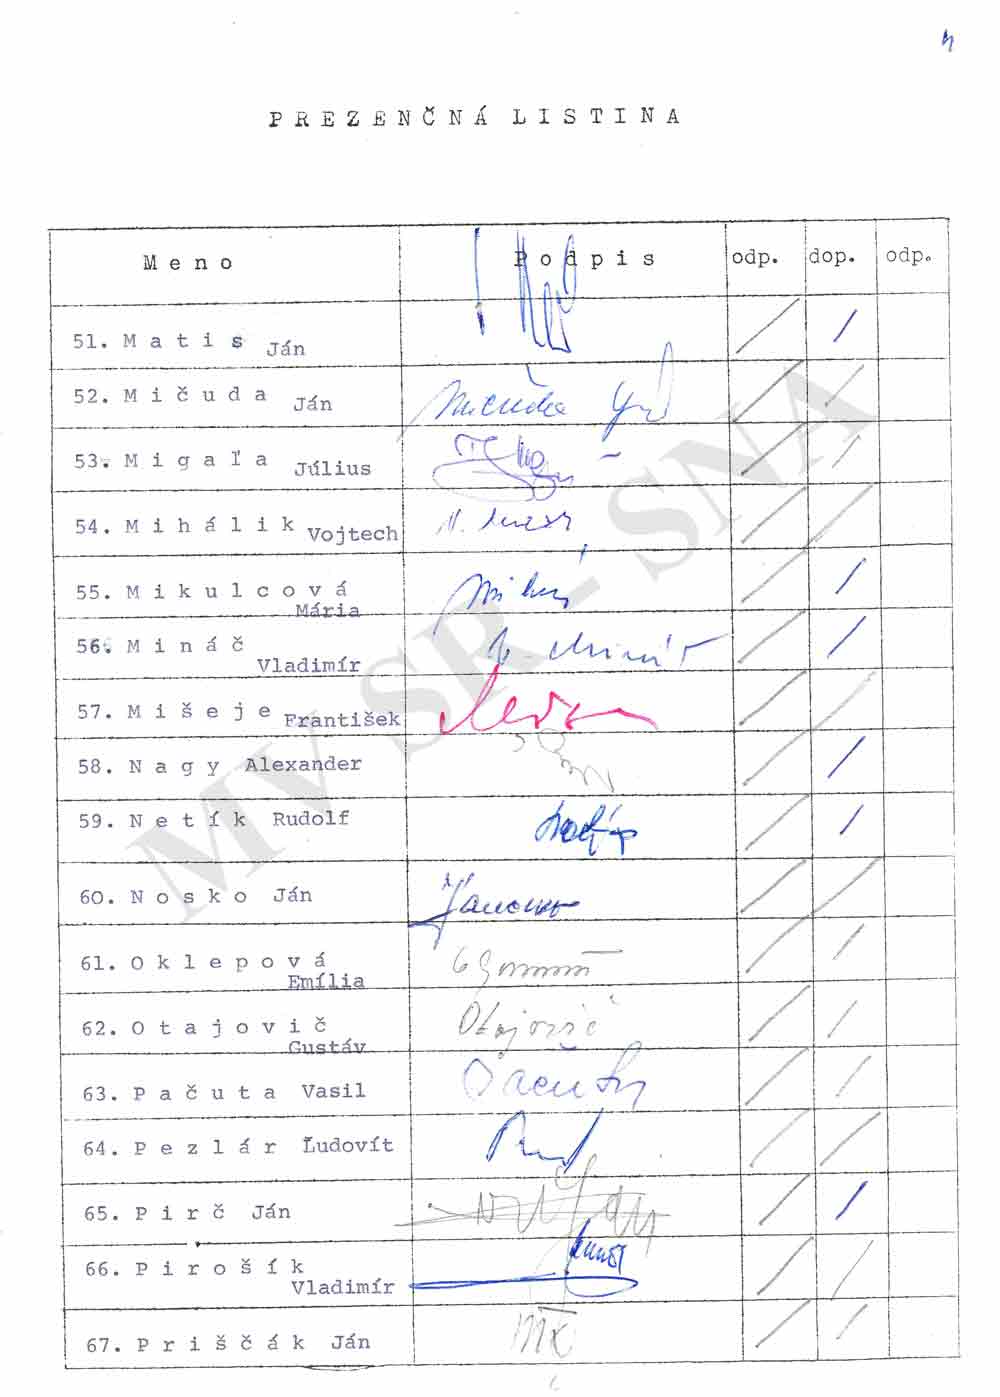 PREZENČNÁ LISTINA
Meno Podpis odp. dop. odp.
51. Matis Ján
52. Mičuda Ján
53. Migaľa Július
54. Mihálik Vojtech
55. Mikulcová Mária
56. Mináč Vladimír
57. Mišeje František
58. Nagy Alexander
59. Netík Rudolf
60. Nosko Ján
61. Oklepová Emília
62. Otajovič Gustáv Otajovič
63. Pačuta Vasil
64. Pezlár Ľudovít
65. Pirč Ján
66. Pirošík Vladimír
67. Priščák Ján
MV SR - SNA